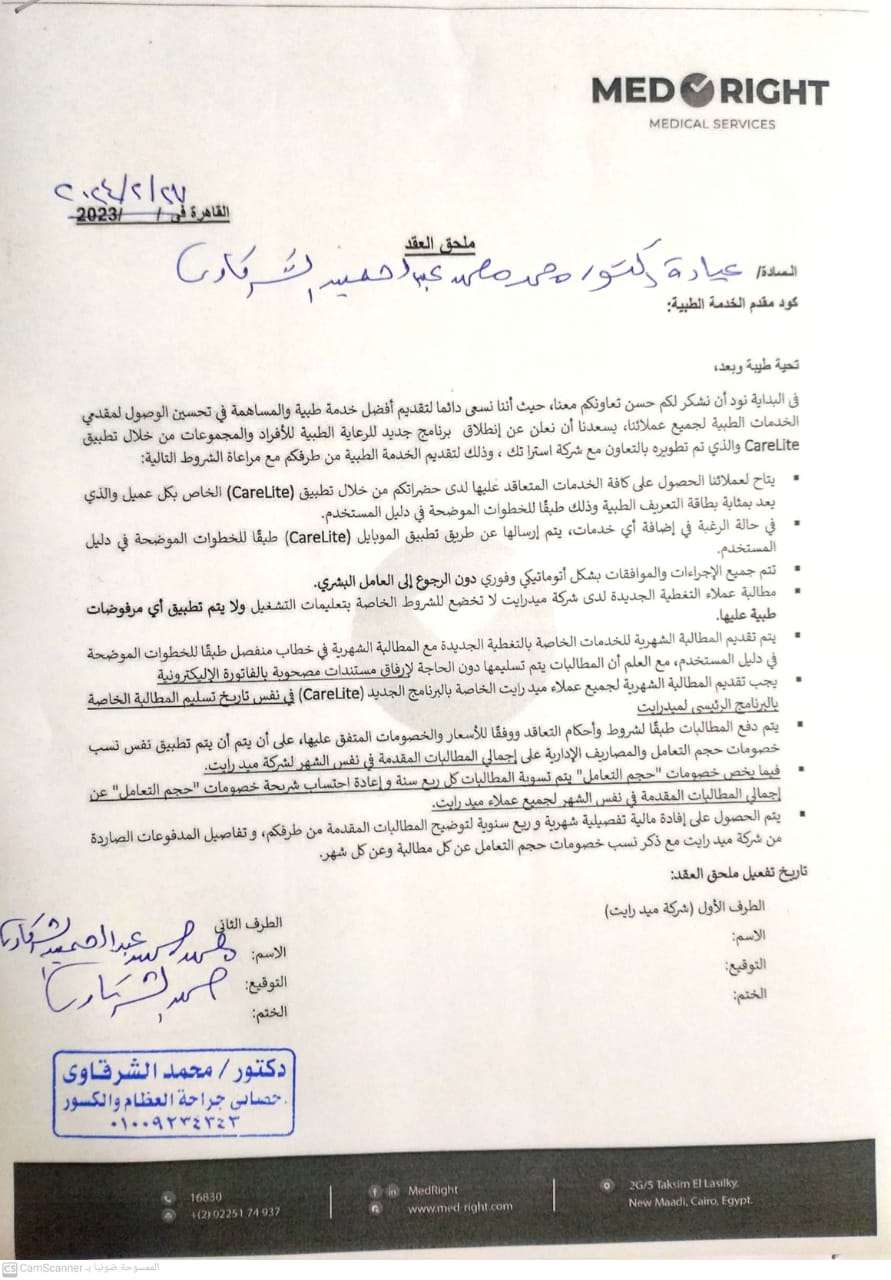 MED RIGHT
MEDICAL SERVICES
٢٠٢٤/٢/٢٧
القاهرة فى / /2023
ملحق العقد
السادة/ عيادة دكتور محمد محمد عبدالحميد الشرقاوى
كود مقدم الخدمة الطبية:
تحية طيبة وبعد،
فى البداية نود أن نشكر لكم حسن تعاونكم معنا، حيث أننا نسعى دائما لتقديم أفضل خدمة طبية والمساهمة في تحسين الوصول لمقدمي
الخدمات الطبية لجميع عملائنا، يسعدنا أن نعلن عن إنطلاق برنامج جديد للرعاية الطبية للأفراد والمجموعات من خلال تطبيق
CareLite والذي تم تطويره بالتعاون مع شركة استرا تك ، وذلك لتقديم الخدمة الطبية من طرفكم مع مراعاة الشروط التالية:
▪ يتاح لعملائنا الحصول على كافة الخدمات المتعاقد عليها لدى حضراتكم من خلال تطبيق (CareLite) الخاص بكل عميل والذي
يعد بمثابة بطاقة التعريف الطبية وذلك طبقًا للخطوات الموضحة في دليل المستخدم.
▪ في حالة الرغبة في إضافة أي خدمات، يتم إرسالها عن طريق تطبيق الموبايل (CareLite) طبقًا للخطوات الموضحة في دليل
المستخدم.
▪ تتم جميع الإجراءات والموافقات بشكل أتوماتيكي وفوري دون الرجوع إلى العامل البشري.
▪ مطالبة عملاء التغطية الجديدة لدى شركة ميدرايت لا تخضع للشروط الخاصة بتعليمات التشغيل ولا يتم تطبيق أي مرفوضات
طبية عليها.
▪ يتم تقديم المطالبة الشهرية للخدمات الخاصة بالتغطية الجديدة مع المطالبة الشهرية في خطاب منفصل طبقًا للخطوات الموضحة
في دليل المستخدم، مع العلم أن المطالبات يتم تسليمها دون الحاجة لإرفاق مستندات مصحوبة بالفاتورة الإليكترونية
▪ يجب تقديم المطالبة الشهرية لجميع عملاء ميد رايت الخاصة بالبرنامج الجديد (CareLite) في نفس تاريخ تسليم المطالبة الخاصة
بالبرنامج الرئيسى لميدرايت
▪ يتم دفع المطالبات طبقًا لشروط وأحكام التعاقد ووفقًا للأسعار والخصومات المتفق عليها، على أن يتم أن يتم تطبيق نفس نسب
خصومات حجم التعامل والمصاريف الإدارية على إجمالي المطالبات المقدمة في نفس الشهر لشركة ميد رايت.
▪ فيما يخص خصومات "حجم التعامل" يتم تسوية المطالبات كل ربع سنة و إعادة احتساب شريحة خصومات "حجم التعامل" عن
إجمالي المطالبات المقدمة في نفس الشهر لجميع عملاء ميد رايت.
▪ يتم الحصول على إفادة مالية تفصيلية شهرية و ربع سنوية لتوضيح المطالبات المقدمة من طرفكم، و تفاصيل المدفوعات الصاردة
من شركة ميد رايت مع ذكر نسب خصومات حجم التعامل عن كل مطالبة وعن كل شهر.
تاريخ تفعيل ملحق العقد:
الطرف الأول (شركة ميد رايت)
الاسم:
التوقيع:
الختم:
الطرف الثاني
الاسم: محمد محمد عبدالحميد الشرقاوى
التوقيع: محمد الشرقاوى
الختم:
دكتور / محمد الشرقاوى
خصائى جراحة العظام والكسور
٠١٠٠٩٢٣٤٣٤٣
16830
+(2) 02251 74 937
MedRight
www.med-right.com
2G/5 Taksim El Lasilky,
New Maadi, Cairo, Egypt.
CS CamScanner الممسوحة ضوئيا بـ